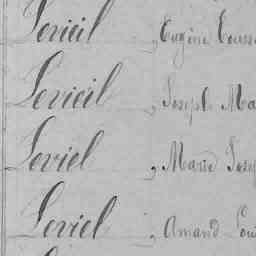 Levieil, Eugène
Levieil, Joseph Ma
Leviel, Marie Josep
Leviel, Amand Lou